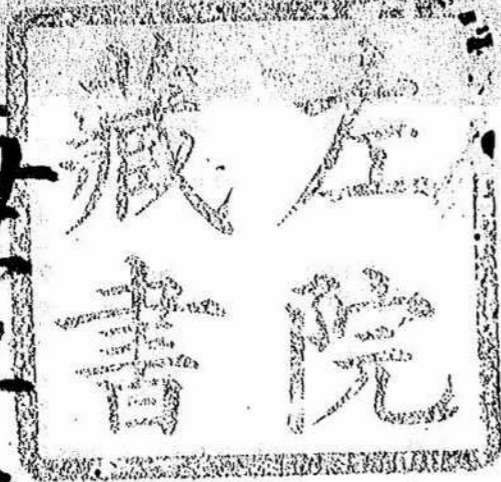 左院
藏書